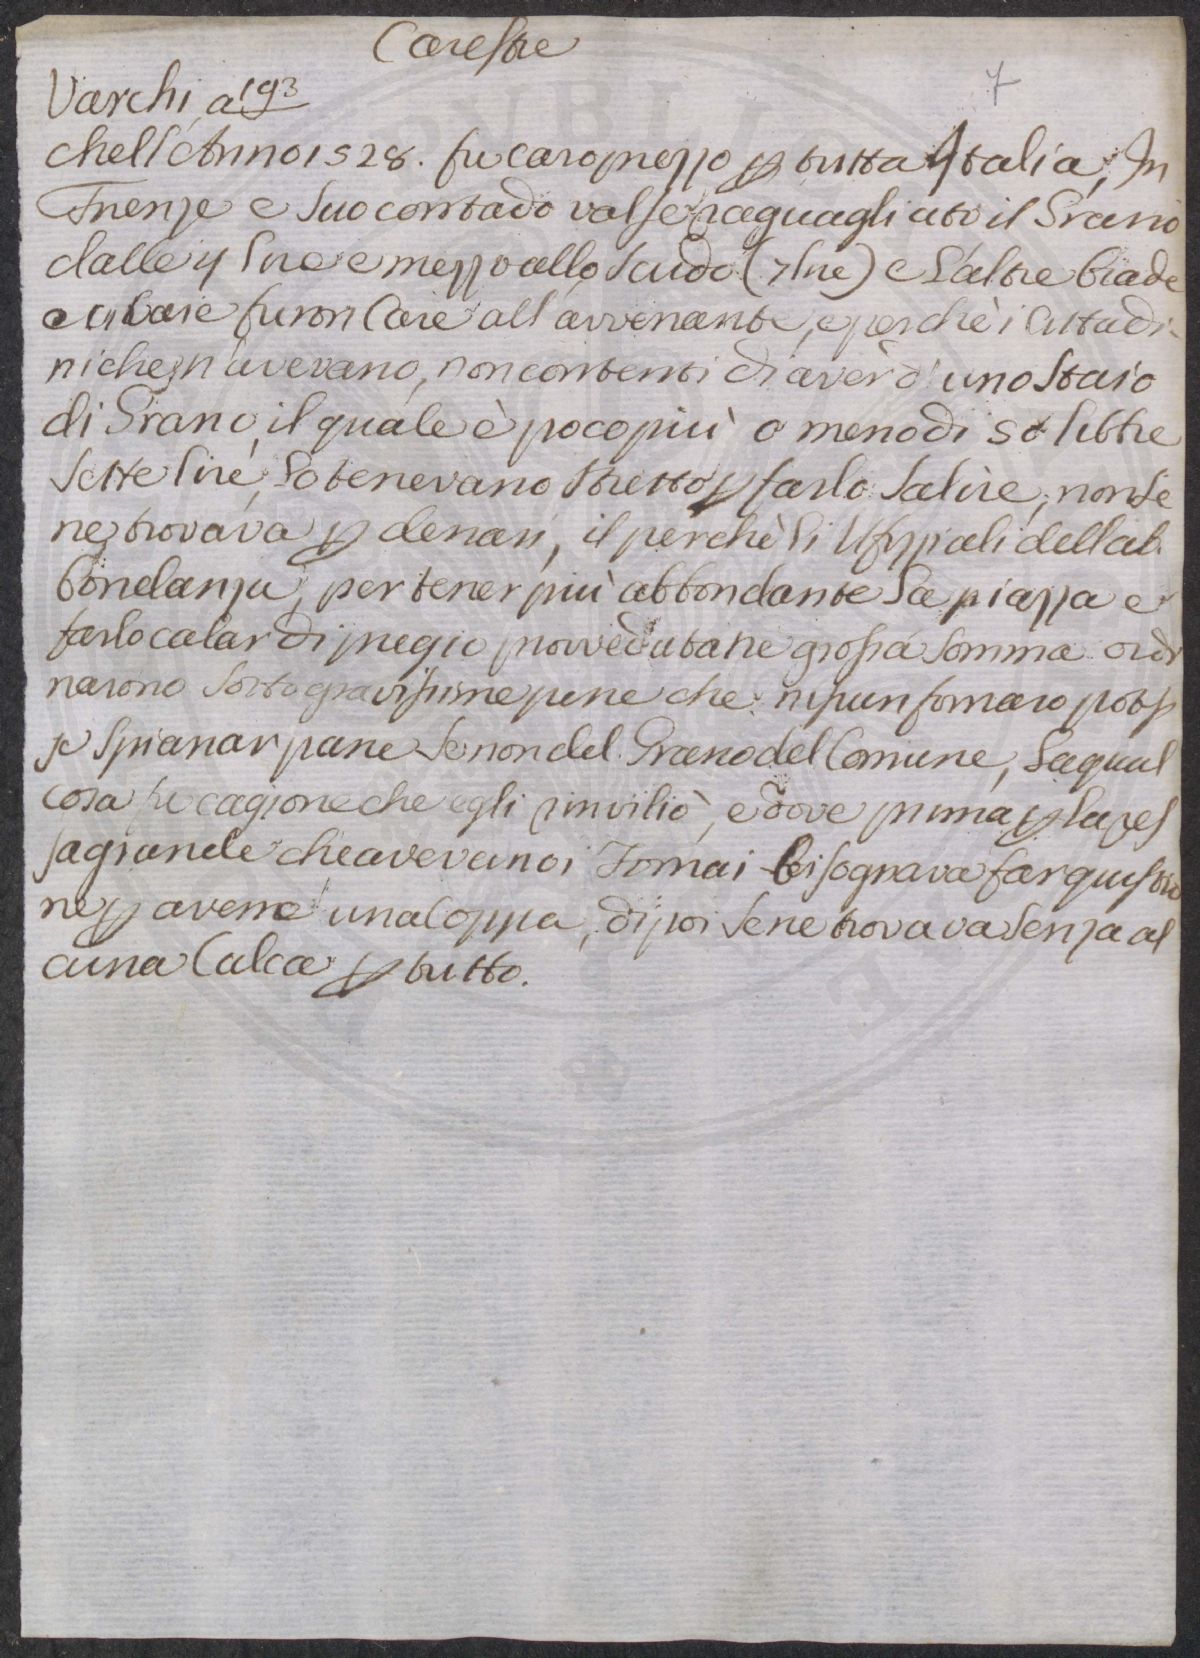 Carestie
7
Varchi, a 193
che l'Anno 1528. fu caro prezzo p tutta Italia, In
Firenze e Suo contado valse raguagliato il Grano
dalle 4 lire e mezzo allo Scudo (7 lire) e l'altre biade
e civaie furon Care all'avvenante, e perchè i Cittadi-
ni che n'avevano, non contenti di aver d'uno Staio
di Grano, il quale è poco più o meno di 50 libbre
Sette lire, lo tenevano stretto p farlo Salire, non Se
ne trovava p denari, il perchè li Ufizziali dell'ab-
bondanza, per tener più abbondante la piazza e
farlo calar di pregio provvedutane grossa Somma ordi
narono Sotto gravissime pene che nissun fornaro potes
se Spianar pane Se non del Grano del Comune, la qual
cosa fu cagione che egli rinviliò, e dove prima p la res
sa grande che avevano i Fornai bisognava far questio
ne p averne una Coppia, di poi Se ne trovava Senza al
cuna Calca p tutto.